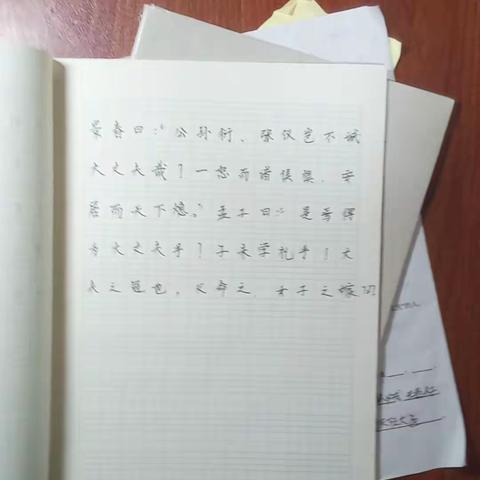 景春曰：“公孙衍、张仪岂不诚
大丈夫哉？一怒而诸侯惧，安
居而天下熄。”孟子曰：“是焉得
为大丈夫乎？子未学礼乎？丈
夫之冠也，父命之，女子之嫁